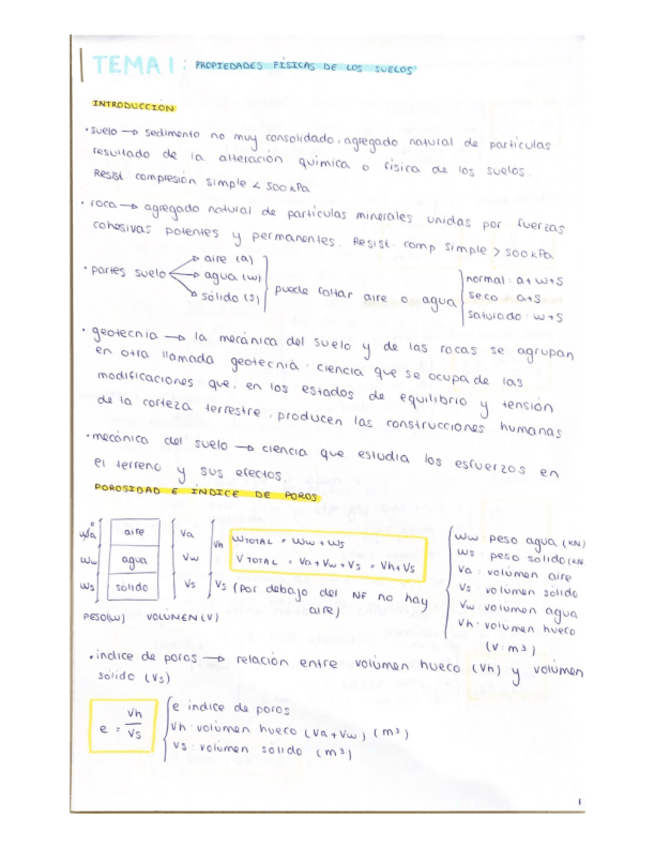 TEMA 1: PROPIEDADES FÍSICAS DE LOS SUELOS
INTRODUCCIÓN
· suelo → sedimento no muy consolidado, agregado natural de partículas
resultado de la alteración química o física de los suelos.
Resist. compresión simple < 500 kPa
· roca → agregado natural de partículas minerales unidas por fuerzas
cohesivas potentes y permanentes. Resist. comp simple > 500 kPa
· partes suelo → aire (a) → agua (w) → sólido (s) puede faltar aire o agua
normal: a+w+s
seco: a+s
saturado: w+s
· geotecnia → la mecánica del suelo y de las rocas se agrupan
en otra llamada geotecnia. ciencia que se ocupa de las
modificaciones que, en los estados de equilibrio y tensión
de la corteza terrestre, producen las construcciones humanas
· mecánica del suelo → ciencia que estudia los esfuerzos en
el terreno y sus efectos.
POROSIDAD E ÍNDICE DE POROS
aire Va
Ww agua Vw Vh
Ws sólido Vs Vs (por debajo del NF no hay
aire)
PESO(W) VOLÚMEN(V)
WTOTAL = Ww + Ws
VTOTAL = Va + Vw + Vs = Vh + Vs
Ww peso agua (kN)
Ws: peso sólido (kN
Va: volúmen aire
Vs: volúmen sólido
Vw volúmen agua
Vh: volúmen hueco
(V: m³)
· índice de poros → relación entre volúmen hueco (Vh) y volúmen
sólido (Vs)
e = Vh / Vs
e índice de poros
Vh: volúmen hueco (Va+Vw) (m³)
Vs: volúmen sólido (m³)
1